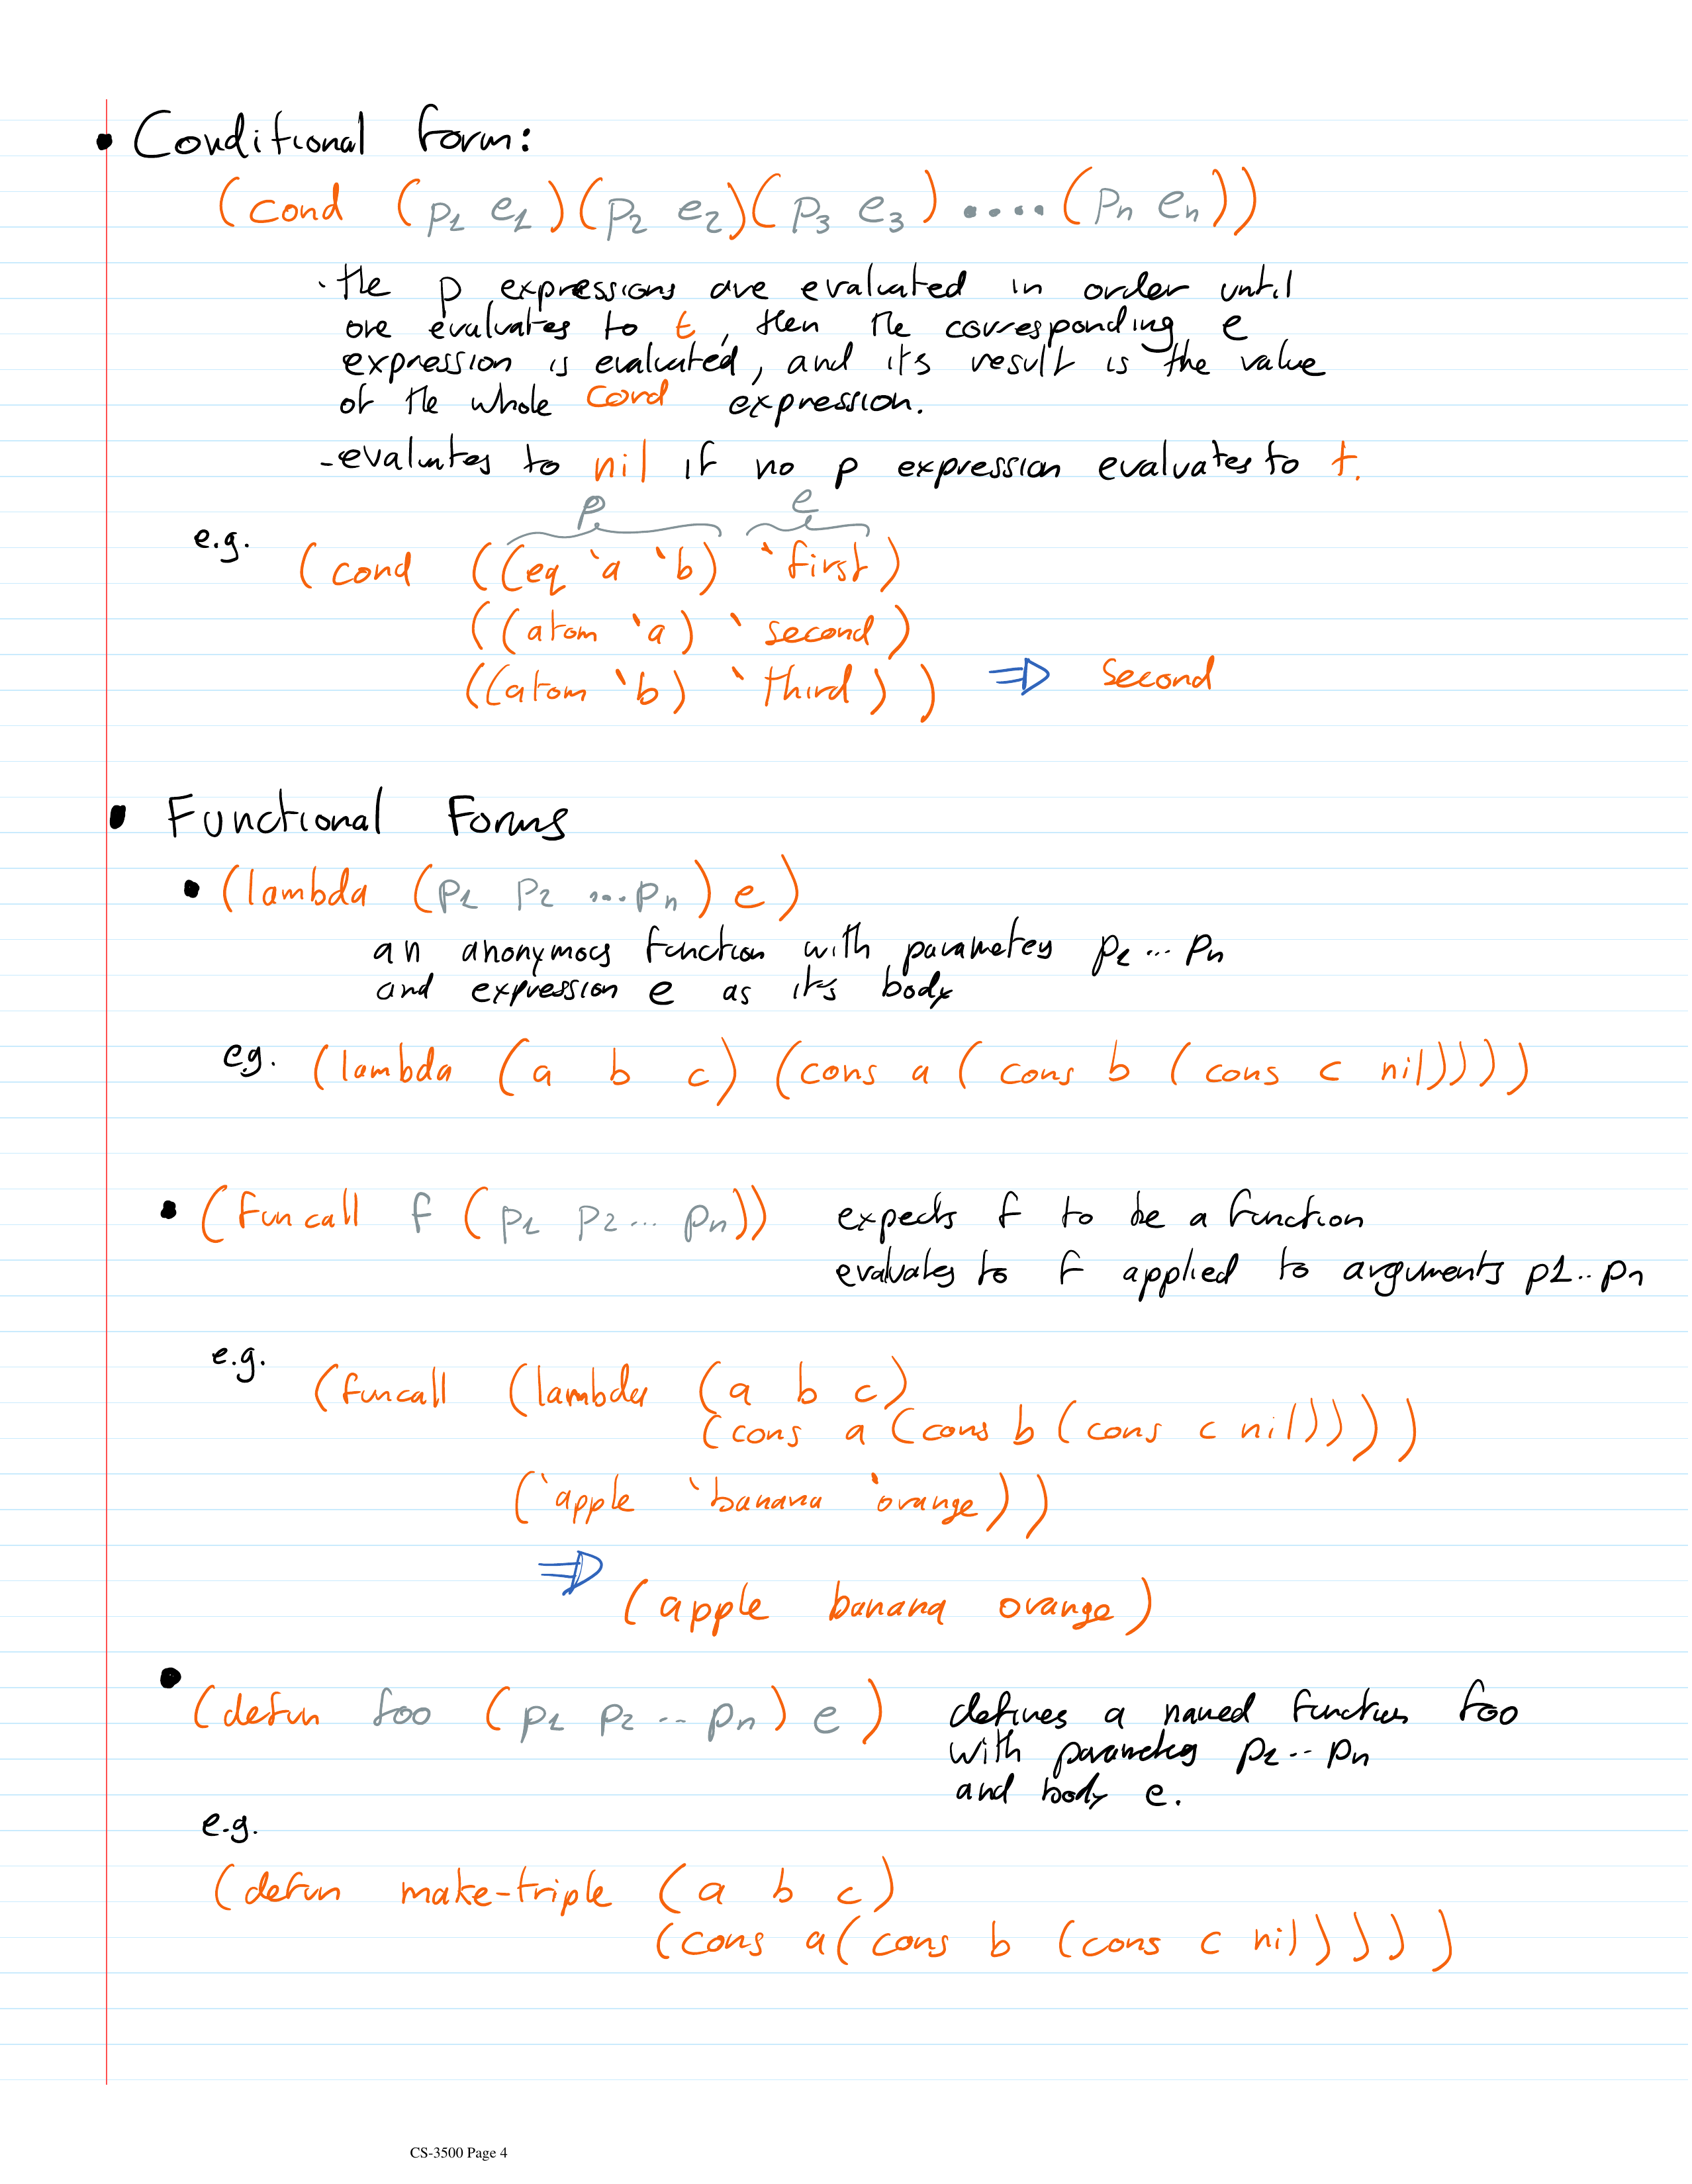 • Conditional form:
(cond (p1 e1)(p2 e2)(p3 e3) .... (pn en))
- the p expressions are evaluated in order until
one evaluates to t, then the corresponding e
expression is evaluated, and its result is the value
of the whole cond expression.
- evaluates to nil if no p expression evaluates to t.
p e
e.g. (cond ((eq 'a 'b) 'first)
((atom 'a) 'second)
((atom 'b) 'third)) ⇒ second
• Functional Forms
• (lambda (p1 p2 ...pn) e)
an anonymous function with parameters p1 ... pn
and expression e as it's body
e.g. (lambda (a b c) (cons a (cons b (cons c nil))))
• (funcall f (p1 p2... pn)) expects f to be a function
evaluates to f applied to arguments p1..pn
e.g. (funcall (lambda (a b c)
(cons a (cons b (cons c nil))))
('apple 'banana 'orange))
⇒ (apple banana orange)
• (defun foo (p1 p2 .. pn) e) defines a named function foo
with parameters p1 .. pn
and body e.
e.g.
(defun make-triple (a b c)
(cons a(cons b (cons c nil))))
CS-3500 Page 4